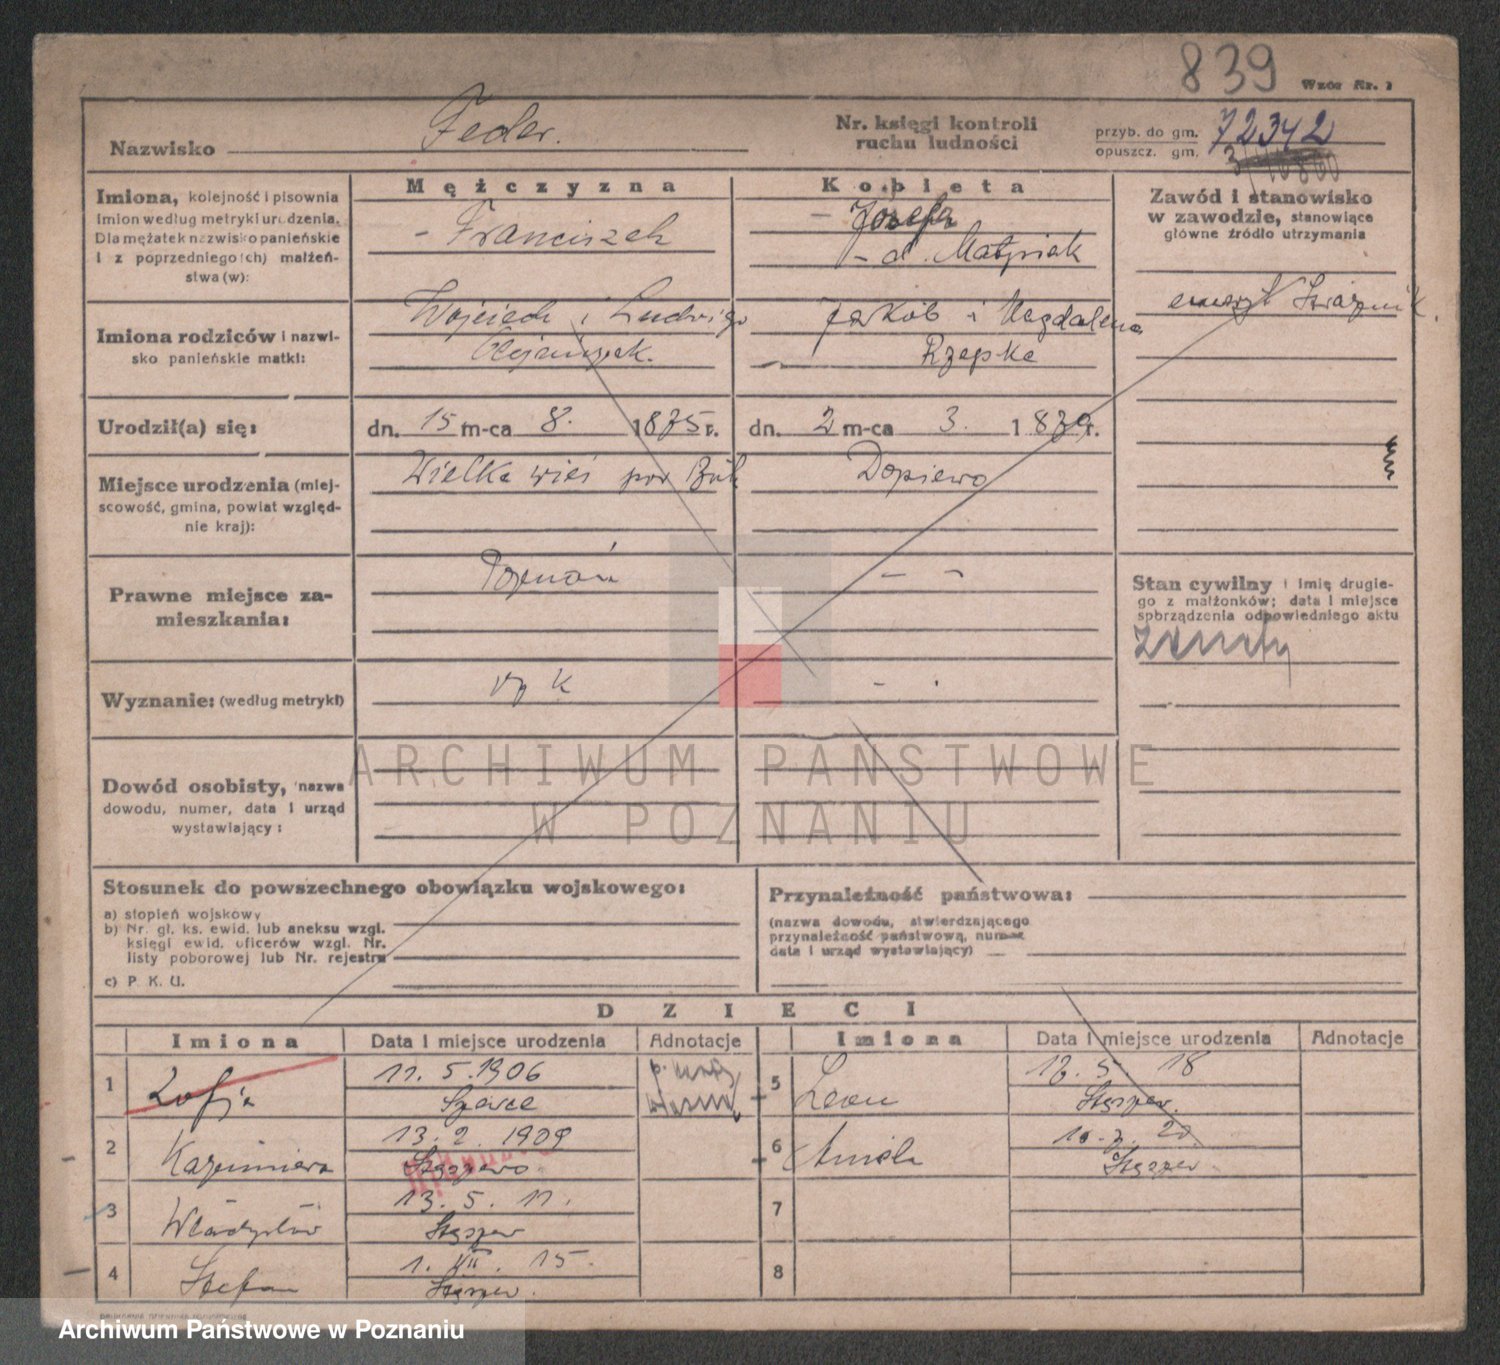 839
Wzór Nr. 1
Nazwisko Feder.
Nr. księgi kontroli
ruchu ludności
przyb. do gm. 72342
opuszcz. gm.
Imiona, kolejność i pisownia
imion według metryki urodzenia.
Dla mężatek nazwisko panieńskie
i z poprzedniego(ch) małżeń-
stwa (w):
Mężczyzna
- Franciszek
Kobieta
- Józefa
- d. Matysiak
Zawód i stanowisko
w zawodzie, stanowiące
główne źródło utrzymania
emeryt
Imiona rodziców i nazwi-
sko panieńskie matki:
Wojciech i Ludwiga
Jakób i Magdalena
Rzepka
Urodził(a) się:
dn. 15 m-ca 8. 1875 r.
dn. 2 m-ca 3. 1879 r.
Miejsce urodzenia (miej-
scowość, gmina, powiat względ-
nie kraj):
Wielka wieś pow Buk
Dopiewo
Prawne miejsce za-
mieszkania:
Poznań
- -
Stan cywilny i imię drugie-
go z małżonków; data i miejsce
sporządzenia odpowiedniego aktu
żonaty
Wyznanie: (według metryki)
rz k
- .
Dowód osobisty, nazwa
dowodu, numer, data i urząd
wystawiający:
ARCHIWUM PAŃSTWOWE
W POZNANIU
Stosunek do powszechnego obowiązku wojskowego:
a) stopień wojskowy
b) Nr. gł. ks. ewid. lub aneksu wzgl.
księgi ewid. oficerów wzgl. Nr.
listy poborowej lub Nr. rejestru
c) P. K. U.
Przynależność państwowa:
(nazwa dowodu, stwierdzającego
przynależność państwową, numer
data i urząd wystawiający)
DZIECI
Imiona
Data i miejsce urodzenia
Adnotacje
Imiona
Data i miejsce urodzenia
Adnotacje
1 Zofja
11. 5. 1906
2 Kazimiera
13. 2. 1909
Stęszewo
3 Władysław
13. 5. 11.
Stęszew
4 Stefan
1. VII. 15.
Stęszew
5 Leon
13. 5. 18
Stęszew
6 Aniela
10. 7. 20
Stęszew
7
8
Archiwum Państwowe w Poznaniu